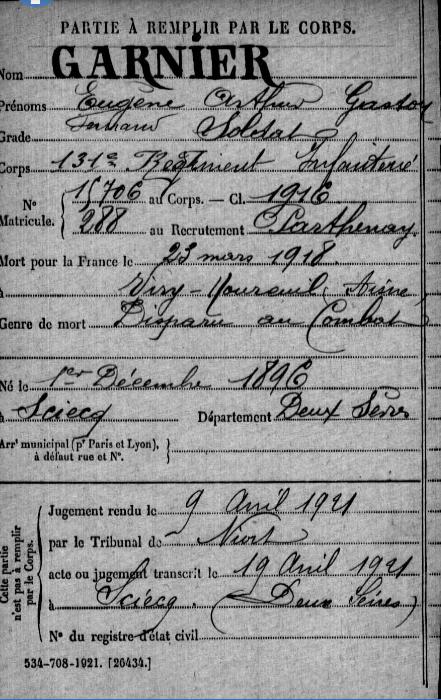 PARTIE À REMPLIR PAR LE CORPS.
Nom GARNIER
Prénoms Eugène Arthur Gaston
Fernand
Grade Soldat
Corps 131e Régiment Infanterie
N° Matricule. 15706 au Corps. — Cl. 1916
288 au Recrutement Parthenay
Mort pour la France le 23 mars 1918
à Viry-Noureuil (Aisne)
Genre de mort Disparu au Combat
Né le 1er Décembre 1896
à Sciecq Département Deux Sèvres
Arrt municipal (pr Paris et Lyon),
à défaut rue et N°.
Cette partie
n'est pas à remplir
par le Corps.
Jugement rendu le 9 Avril 1921
par le Tribunal de Niort
acte ou jugement transcrit le 19 Avril 1921
à Sciecq. (Deux Sèvres)
N° du registre d'état civil
534-708-1921. [26434.]